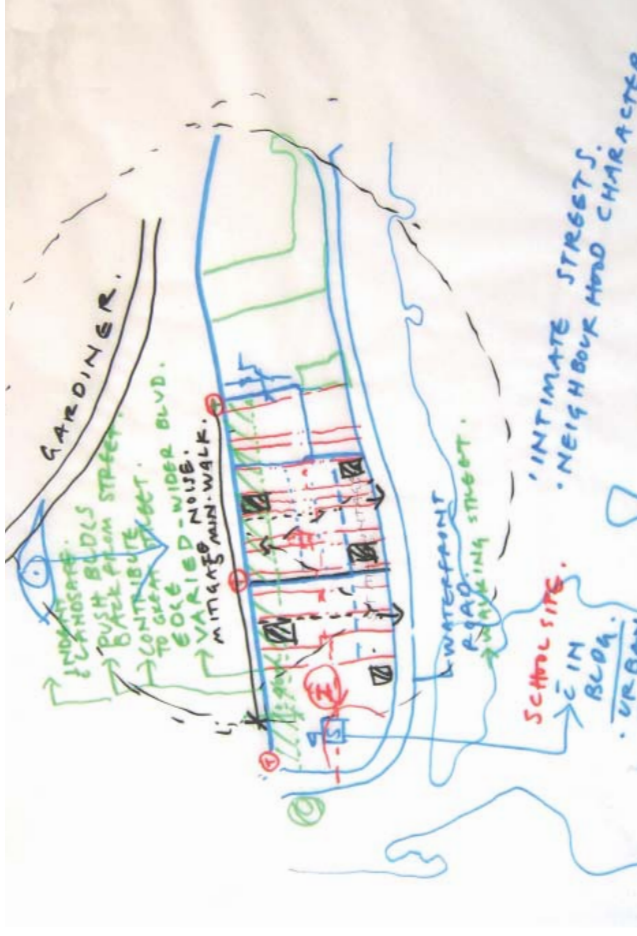 GARDINER.
INDENT
LANDSAPE.
PUSH BLDGS
BACK FROM STREET.
CONTRIBUTE
TO GREAT STREET.
EDGE
VARIED - WIDER BLVD.
MITIGATE NOISE.
5 MIN. WALK.
WATERFRONT
ROAD.
WALKING STREET.
SCHOOL SITE.
IN
BLDG.
· URBAN
· INTIMATE STREETS.
· NEIGHBOURHOOD CHARACTER
S